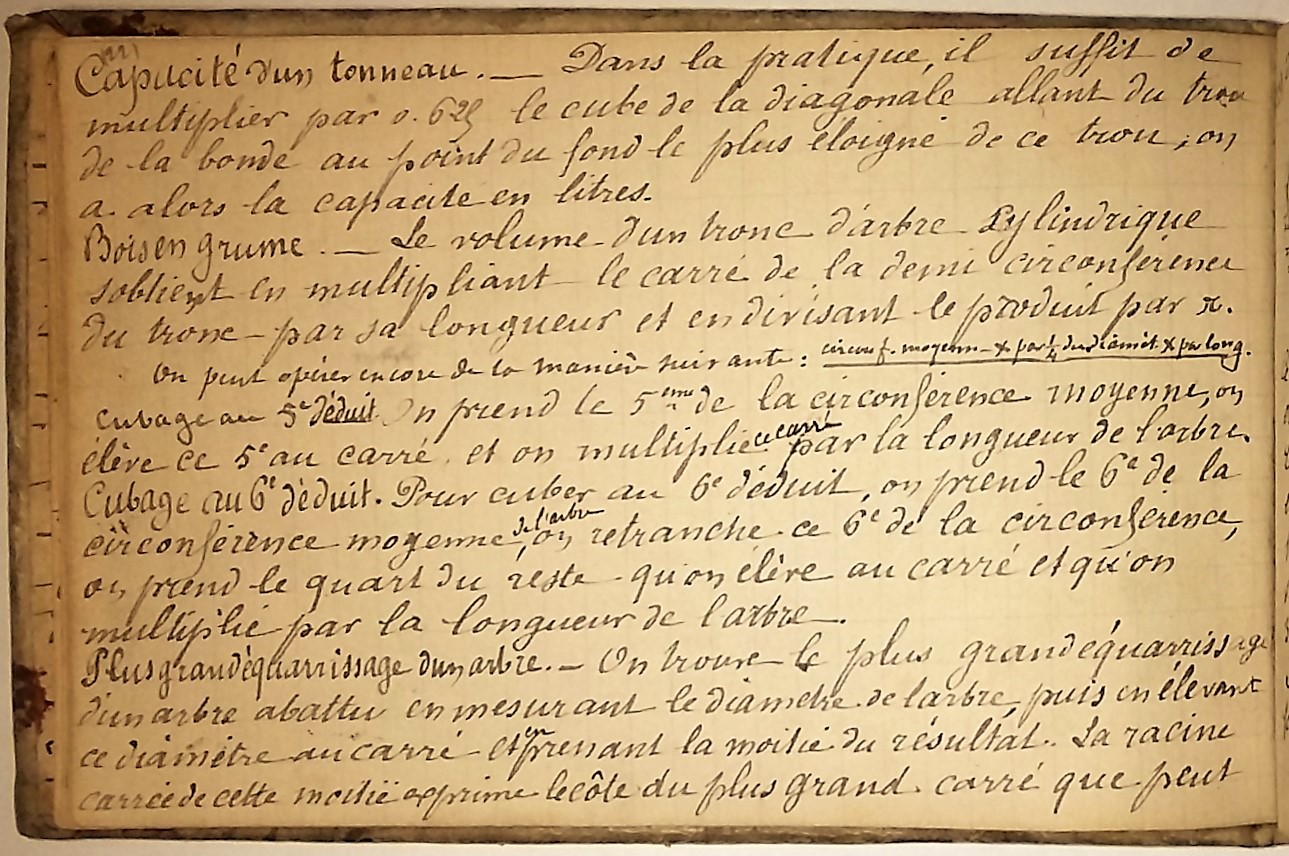 Capacité d'un tonneau. — Dans la pratique, il suffit de
multiplier par 0.625 le cube de la diagonale allant du trou
de la bonde au point du fond le plus éloigné de ce trou, on
a alors la capacité en litres.
Bois en grume. — Le volume d'un tronc d'arbre cylindrique
s'obtient en multipliant le carré de la demi circonférence
du tronc par sa longueur et en divisant le produit par π.
On peut opérer encore de la manière suivante : circonf. moyenn. × par 1/4 du diamèt. × par long.
Cubage au 5e déduit. On prend le 5ème de la circonférence moyenne, on
élève ce 5e au carré et on multiplie ce carré par la longueur de l'arbre.
Cubage au 6e déduit. Pour cuber au 6e déduit, on prend le 6e de la
circonférence moyenne de l'arbre, on retranche ce 6e de la circonférence,
on prend le quart du reste qu'on élève au carré et qu'on
multiplie par la longueur de l'arbre.
Plus grand équarrissage d'un arbre. — On trouve le plus grand équarrissage
d'un arbre abattu en mesurant le diamètre de l'arbre, puis en élevant
ce diamètre au carré et en prenant la moitié du résultat. La racine
carrée de cette moitié exprime le côte du plus grand carré que peut